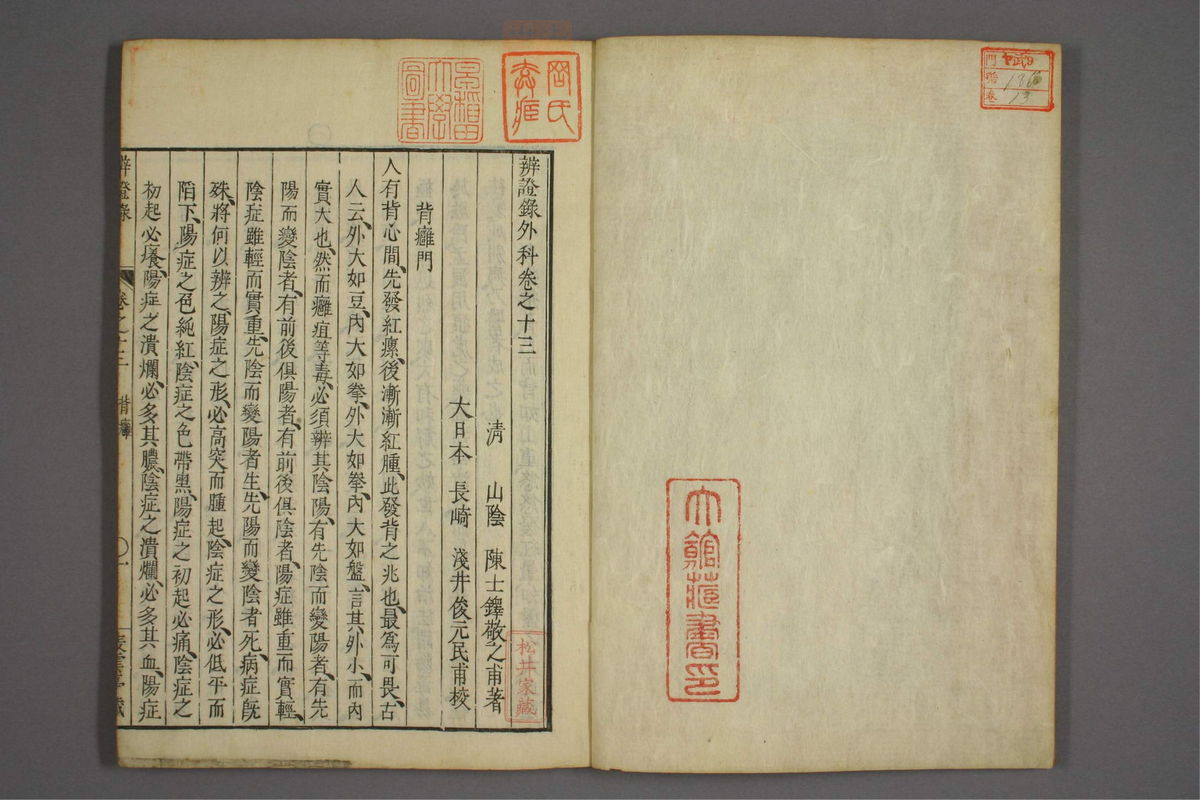 大館蔵書印
辨證錄外科卷之十三
清 山陰 陳士鐸敬之甫著
大日本 長崎 淺井俊元民甫校
背癰門
人有背心間、先發紅瘰、後漸漸紅腫、此發背之兆也、最爲可畏、古
人云、外大如豆、內大如拳、外大如拳、內大如盤、言其外小、而內
實大也、然而癰疽等毒、必須辨其陰陽、有先陰而變陽者、有先
陽而變陰者、有前後俱陽者、有前後俱陰者、陽症雖重而實輕、
陰症雖輕而實重、先陰而變陽者生、先陽而變陰者死、病症旣
殊、將何以辨之、陽症之形、必高突而腫起、陰症之形、必低平而
陷下、陽症之色純紅、陰症之色帶黑、陽症之初起必痛、陰症之
初起必癢、陽症之潰爛、必多其膿、陰症之潰爛、必多其血、陽症
早稻田大學圖書
松井家藏